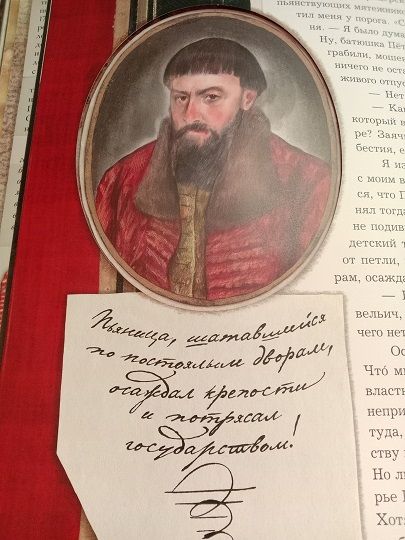 пьянствующих мятежник
тил меня у порога. «С
ня. — Я было дума
Ну, батюшка Пё
грабили, моше
ничего не оста
живого отпус
— Нет
— Ка
который в
ре? Заяч
бестия, е
Я из
с моим в
ся, что П
нял тогд
не подив
детский т
от петли,
рам, осажд
— 
вельич,
чего нет
Ос
Чтó м
власт
непри
туда,
ству
Но ли
рье
Хот
Пьяница, шатавшийся
по постоялым дворам,
осаждал крепости
и потрясал
государством!